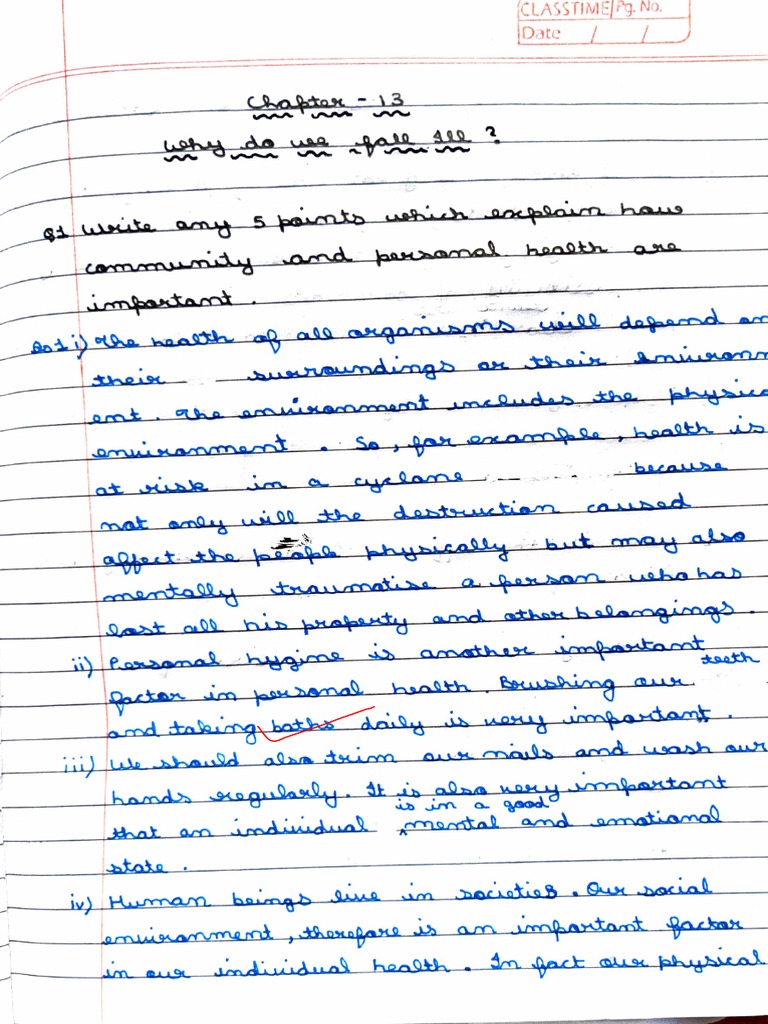 CLASSTIME/Pg. No.
Date / /
Chapter - 13
Why do we fall Ill ?
Q1 Write any 5 points which explain how
community and personal health are
important.
Ans1 i) The health of all organisms will depend on
their surroundings or their environm
ent. The environment includes the physica
environment. So, for example, health is
at risk in a cyclone because
not only will the destruction caused
affect the people physically but may also
mentally traumatise a person who has
lost all his property and other belongings.
ii) Personal hygine is another important
factor in personal health. Brushing our teeth
and taking baths daily is very important.
iii) We should also trim our nails and wash our
hands regularly. It is also very important
that an individual is in a good mental and emotional
state.
iv) Human beings live in societies. Our social
environment, therefore is an important factor
in our individual health. In fact our physical